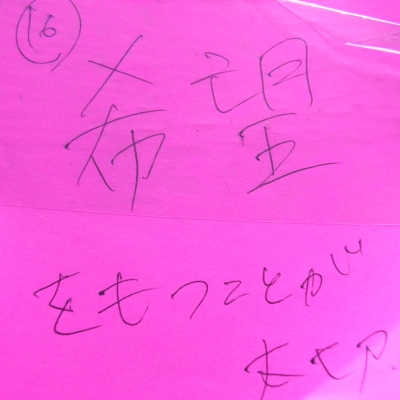 16
希望
をもつことが
大切